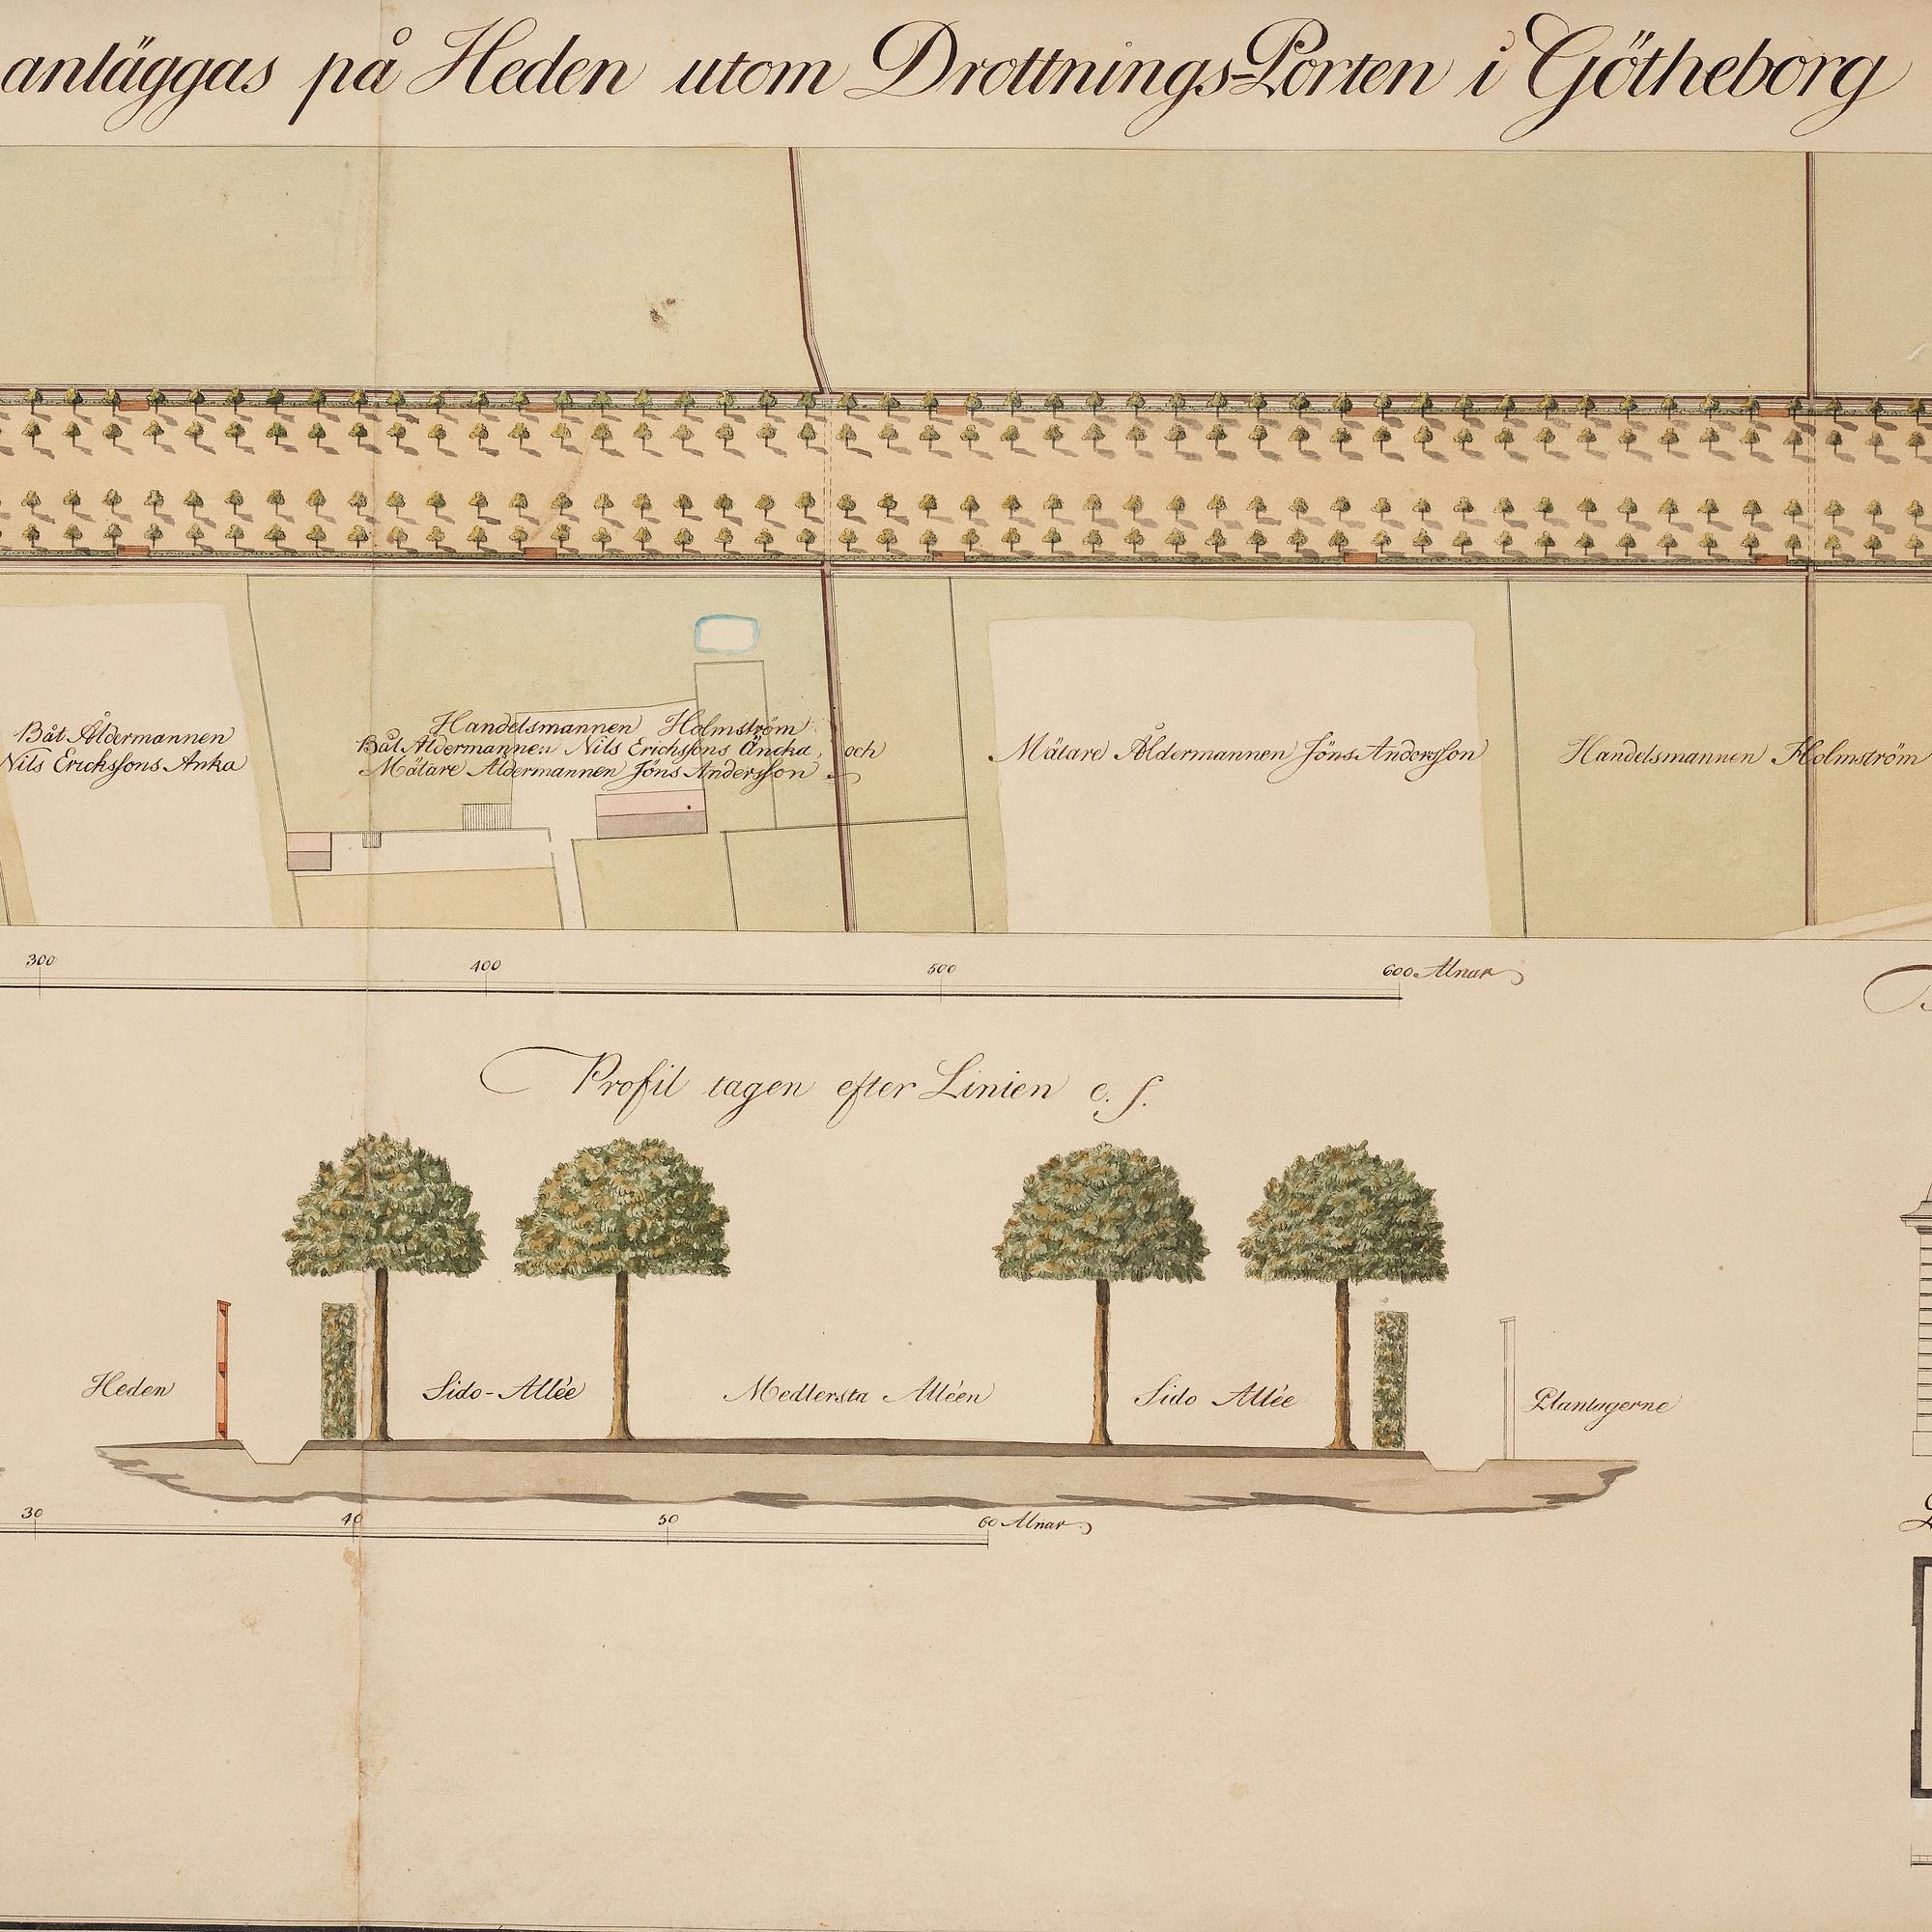 anläggas på Heden utom Drottnings-Porten i Götheborg
Båt Åldermannen
Nils Ericksons Anka
Handelsmannen Holmström
Båt Åldermannen Nils Ericksons Äncka, och
Mätare Åldermannen Jöns Andersson
Mätare Åldermannen Jöns Andersson
Handelsmannen Holmström
300 400 500 600 Alnar
Profil tagen efter Linien e. f.
Heden Sido-Allée Medlersta Alléen Sido Allée Plantagerne
30 40 50 60 Alnar